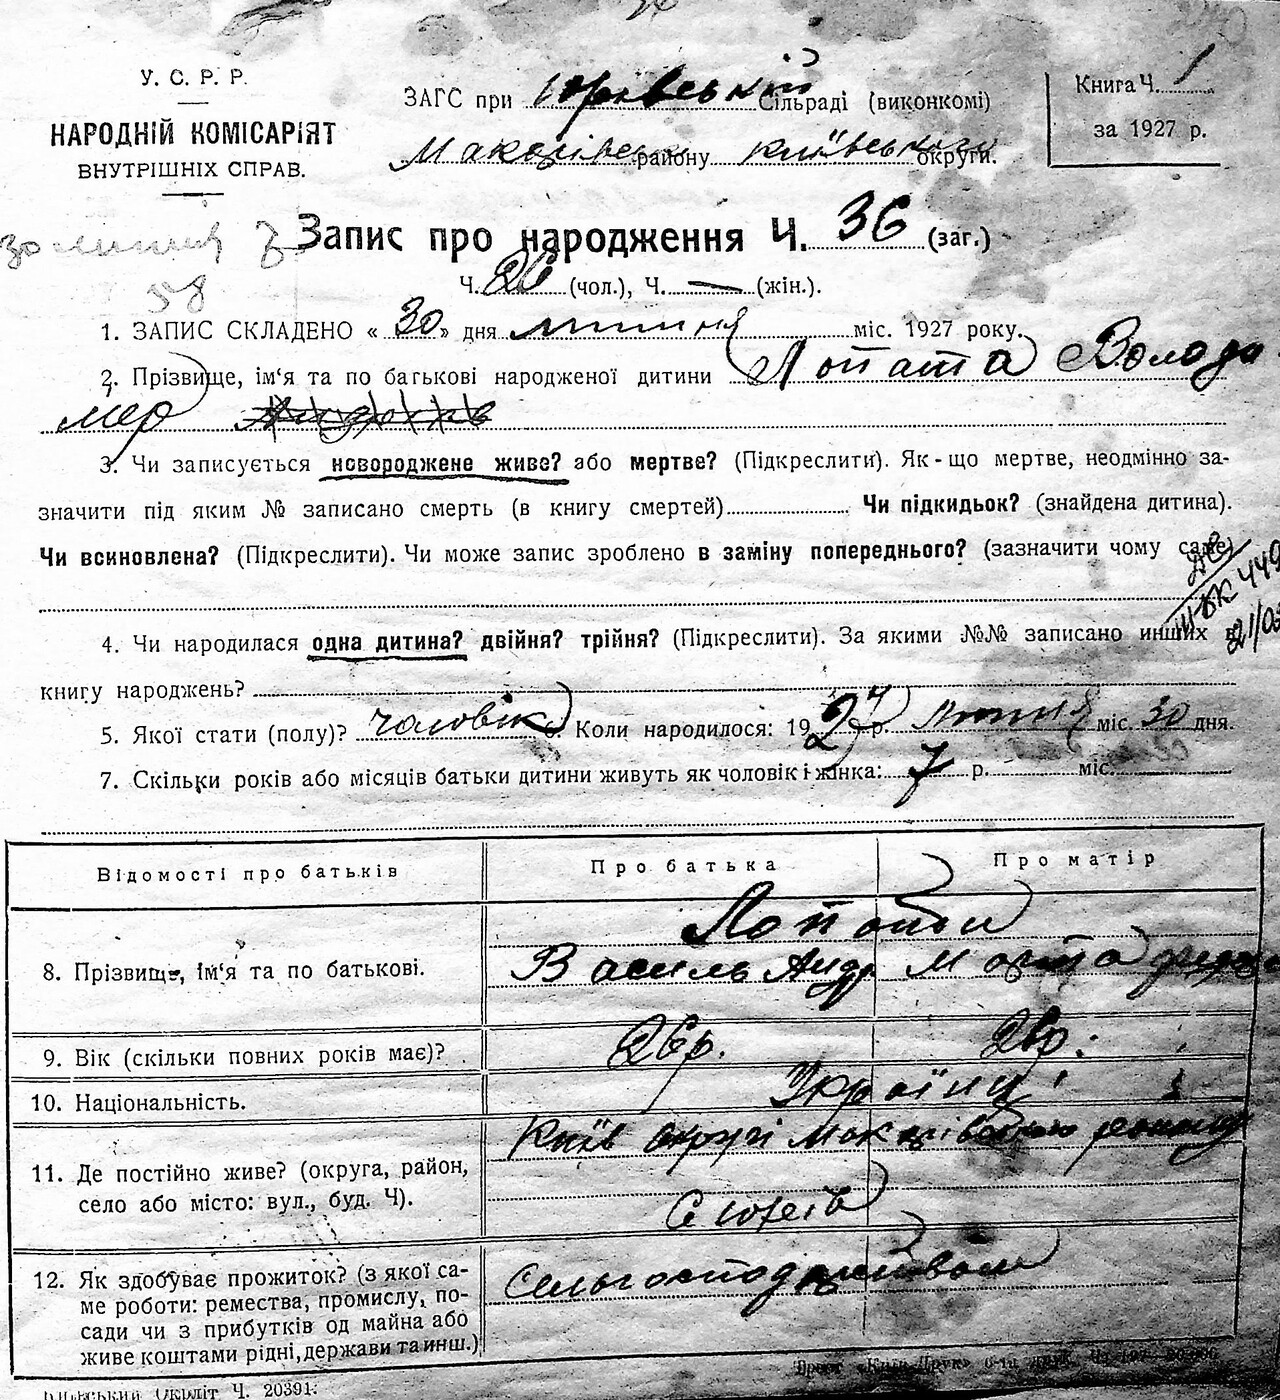 У. С. Р. Р.
НАРОДНІЙ КОМІСАРІЯТ
ВНУТРІШНІХ СПРАВ.
ЗАГС при Юрівській Сільраді (виконкомі)
Макарівськ району Київського округи.
Книга Ч. 1
за 1927 р.
Запис про народження Ч. 36 (заг.)
58
Ч. 20 (чол.), Ч. — (жін.).
1. ЗАПИС СКЛАДЕНО « 30 » дня липня міс. 1927 року.
2. Прізвище, ім‘я та по батькові народженої дитини Лопата Волода
мер
3. Чи записується новороджене живе? або мертве? (Підкреслити). Як-що мертве, неодмінно за-
значити під яким № записано смерть (в книгу смертей) Чи підкидьок? (знайдена дитина).
Чи всиновлена? (Підкреслити). Чи може запис зроблено в заміну попереднього? (зазначити чому саме)
4. Чи народилася одна дитина? двійня? трійня? (Підкреслити). За якими №№ записано инших в
книгу народжень?
5. Якої стати (полу)? чаловік Коли народилося: 1927 р. липня міс. 30 дня.
7. Скільки років або місяців батьки дитини живуть як чоловік і жінка: 7 р. міс.
Відомості про батьків Про батька Про матір
Лопати
8. Прізвище, ім‘я та по батькові. Василь Андр Марта
9. Вік (скільки повних років має)? 26 р. 26 р.
10. Національність. Українці
11. Де постійно живе? (округа, район,
село або місто: вул., буд. Ч).
Київ округі Макарівського району
С Юрів
12. Як здобуває прожиток? (з якої са-
ме роботи: ремества, промислу, по-
сади чи з прибутків од майна або
живе коштами рідні, держави та инш.)
Сельгосподарством
Київський Окрліт Ч. 20391.